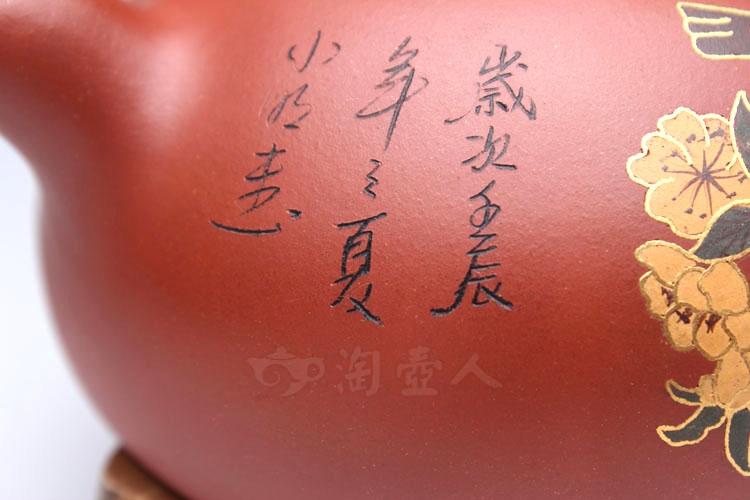 歲次壬辰
年之夏
小明畫
淘壺人